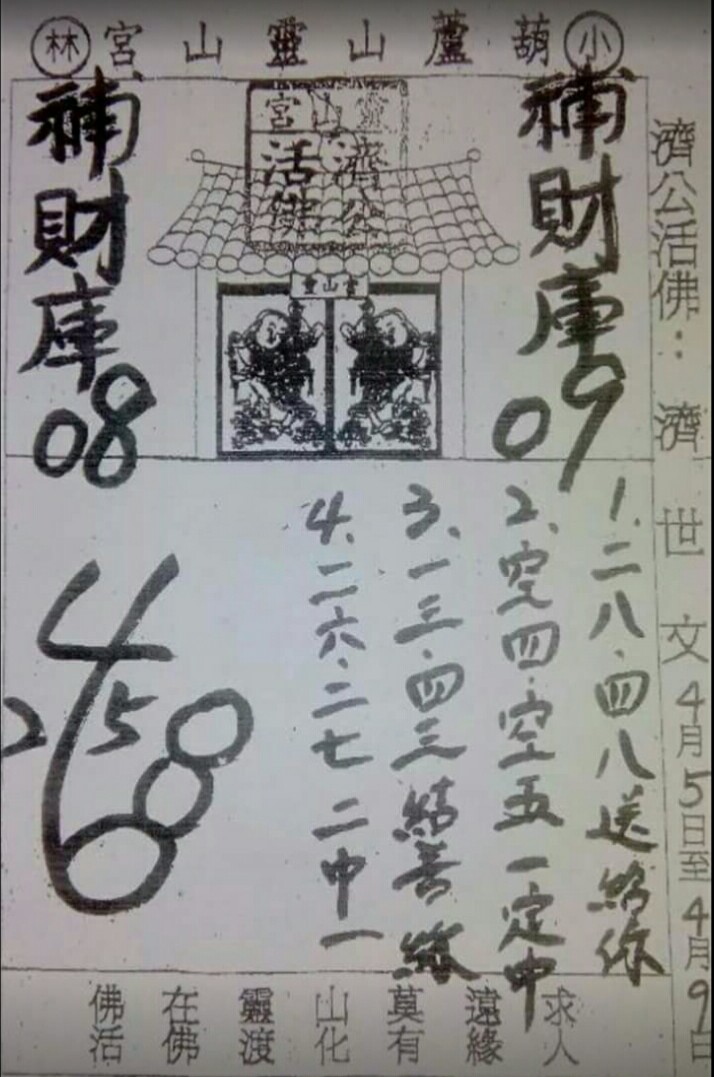 小葫蘆山靈山宮林
濟公活佛：濟世文4月5日至4月9日
補財庫09
靈山宮
濟公
活佛
靈山宮
補財庫08
1、二八.四八送給你
2、空四.空五一定中
3、一三.四三結善緣
4、二六.二七二中一
4
2 5
佛在靈山莫遠求
活佛渡化有緣人